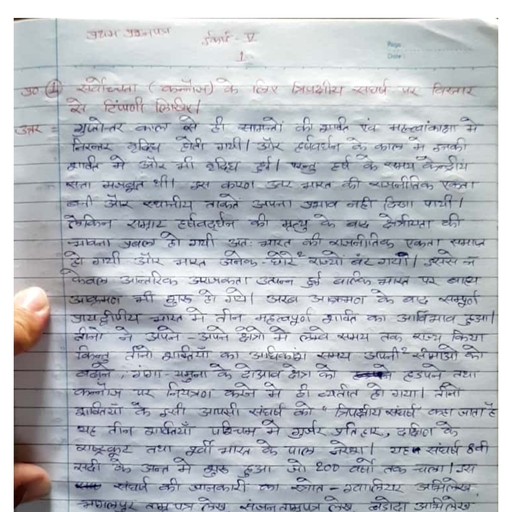 प्रथम प्रश्नपत्र
इकाई - V
Page
Date
1
प्र० ① सर्वोच्चता (कन्नौज) के लिए त्रिपक्षीय संघर्ष पर विस्तार
से टिप्पणी लिखिए।
उत्तर = गुप्तोत्तर काल से ही सामन्तों की शक्ति एवं महत्वाकांक्षा मे
निरन्तर वृध्दि होती गयी। और हर्षवर्धन के काल मे इनकी
शक्ति मे और भी वृध्दि हुई। परन्तु हर्ष के समय केन्द्रीय
सत्ता मजबूत थी। इस कारण उत्तर भारत की राजनीतिक एकता
बनी और स्थानीय ताकते अपना प्रभाव नही दिखा पायी।
लेकिन सम्राट हर्षवर्धन की मृत्यु के बाद क्षेत्रीयता की
भावना प्रबल हो गयी अतः भारत की राजनीतिक एकता समाप्त
हो गयी और भारत अनेक छोटे राज्यो बंट गया। इससे न
केवल आन्तरिक अराजकता उत्पन्न हुई बल्कि भारत पर बाह्य
आक्रमण भी शुरू हो गये। अरब आक्रमण के बाद सम्पूर्ण
प्रायद्वीपीय भारत मे तीन महत्वपूर्ण शक्ति का आविर्भाव हुआ।
तीनो ने अपने अपने क्षेत्रो मे लम्बे समय तक राज्य किया
किन्तु तीनो शक्तियो का अधिकांश समय अपनी सीमाओ को
बढाने, गंगा-यमुना के दोआब क्षेत्र को हडपने तथा
कन्नौज पर नियंत्रण करने मे ही व्यतीत हो गया। तीनो
शक्तियो के इसी आपसी संघर्ष को "त्रिपक्षीय संघर्ष" कहा जाता है
यह तीन शक्तियाँ पश्चिम मे गुर्जर प्रतिहार, दक्षिण के
राष्ट्रकूट तथा पूर्वी भारत के पाल नरेश। यह संघर्ष 8वी
सदी के अन्त मे शुरू हुआ जो 200 वर्षो तक चला। इस
संघर्ष की जानकारी का स्त्रोत - ग्वालियर अभिलेख,
भागलपुर ताम्रपत्र लेख, संजन ताम्रपत्र लेख, बडौदा अभिलेख